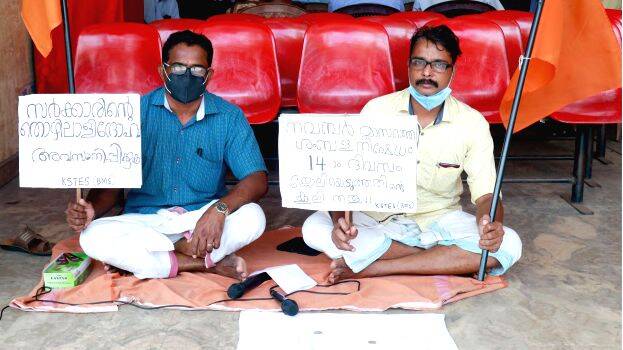 സർക്കാരിന്റെ
തൊഴിലാളിദ്രോഹ
അവസാനിപ്പിക്കുക
KSTES (BMS)
നവമ്പർ മാസത്തെ
ശമ്പള നിഷേധം
14-ാം ദിവസം
KSTES (BMS)